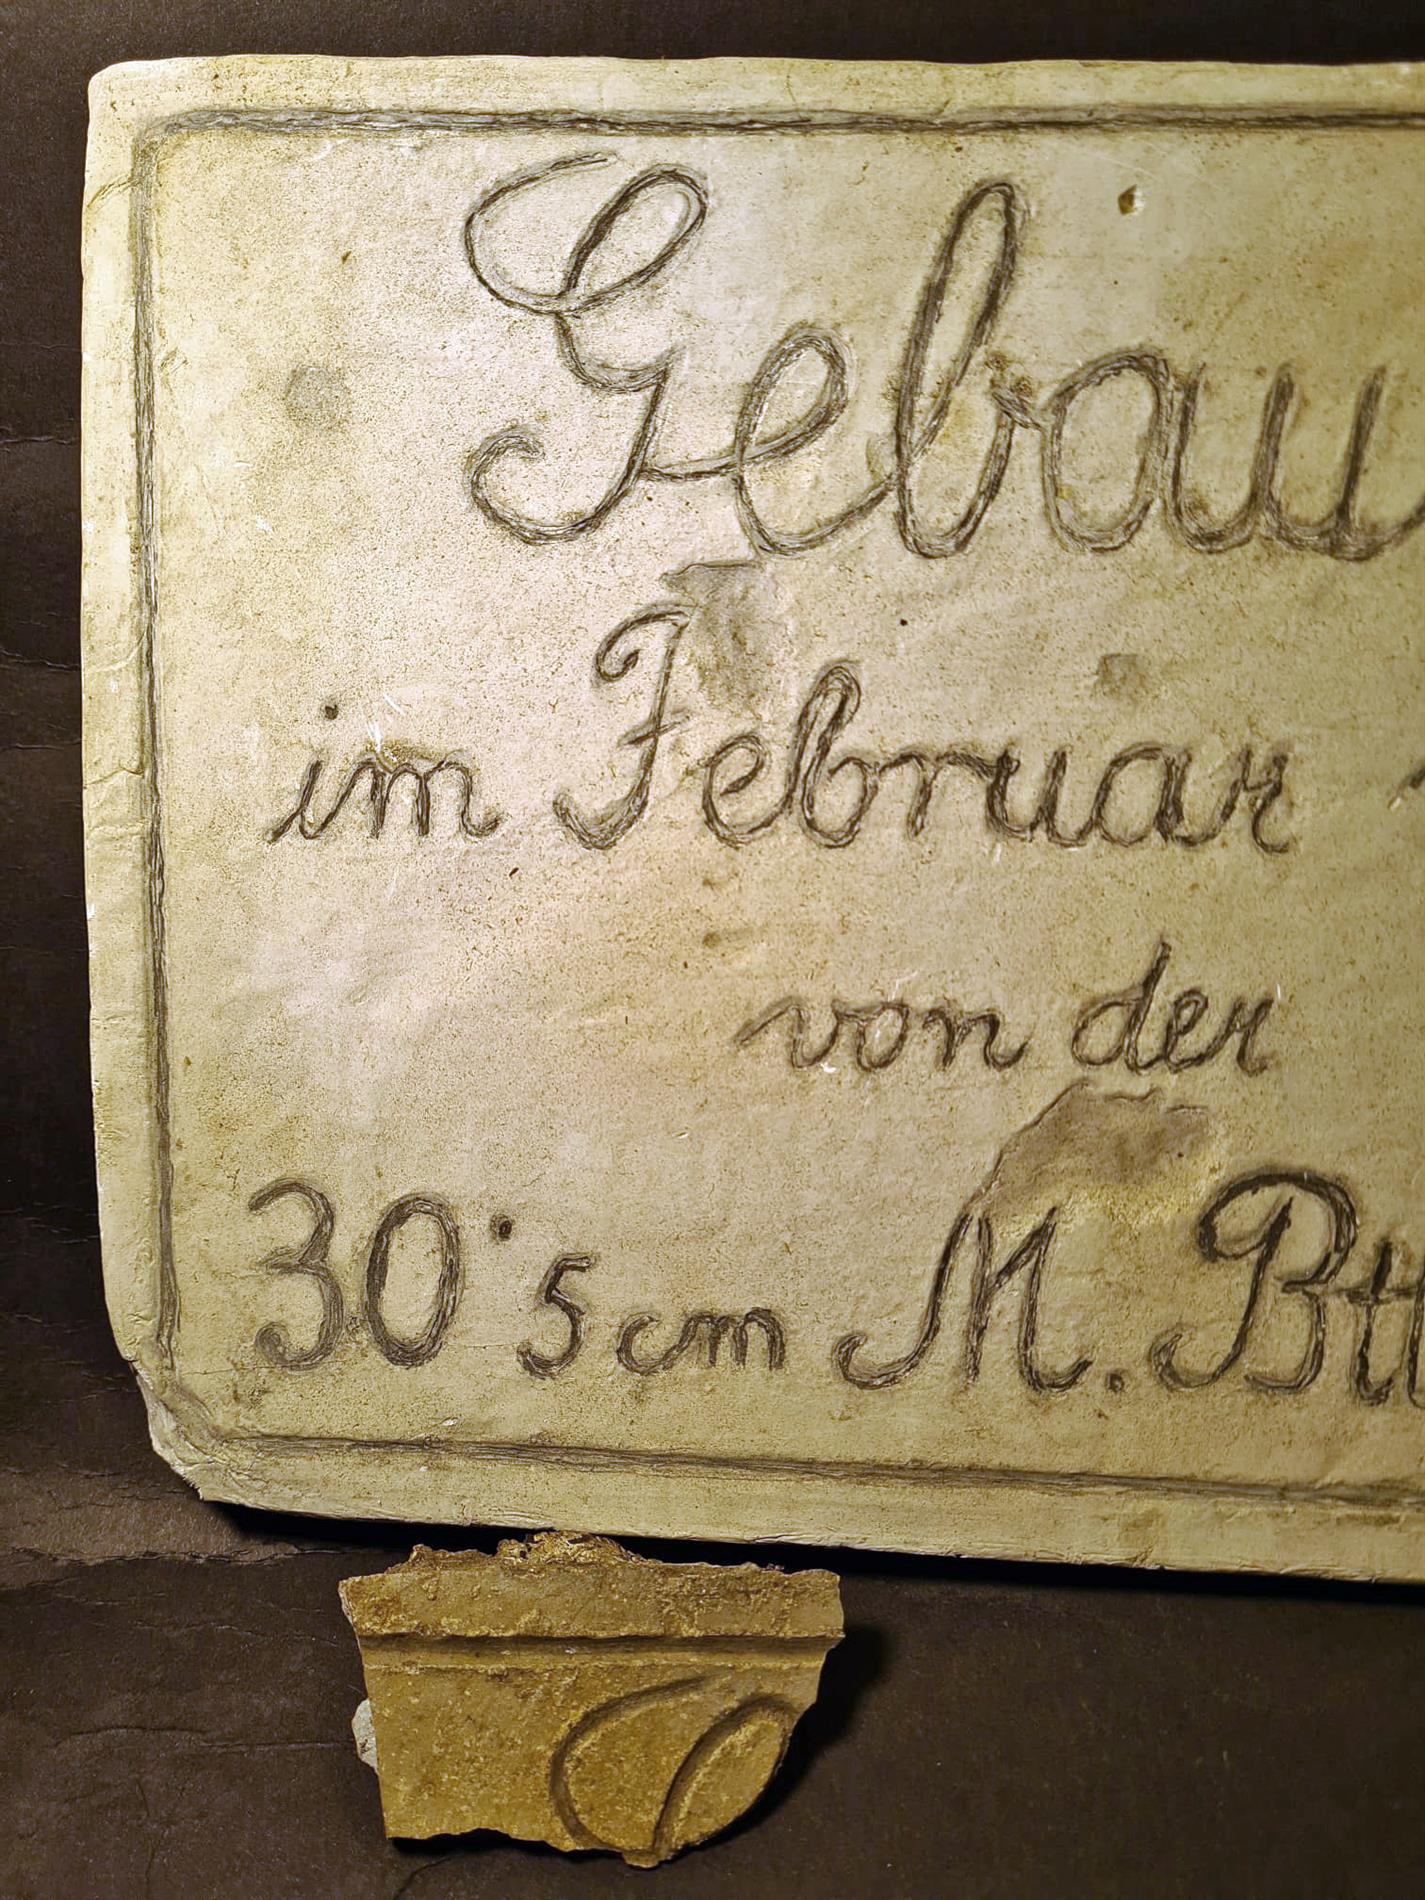 Gebau
im Februar
von der
30·5 cm M. Btt